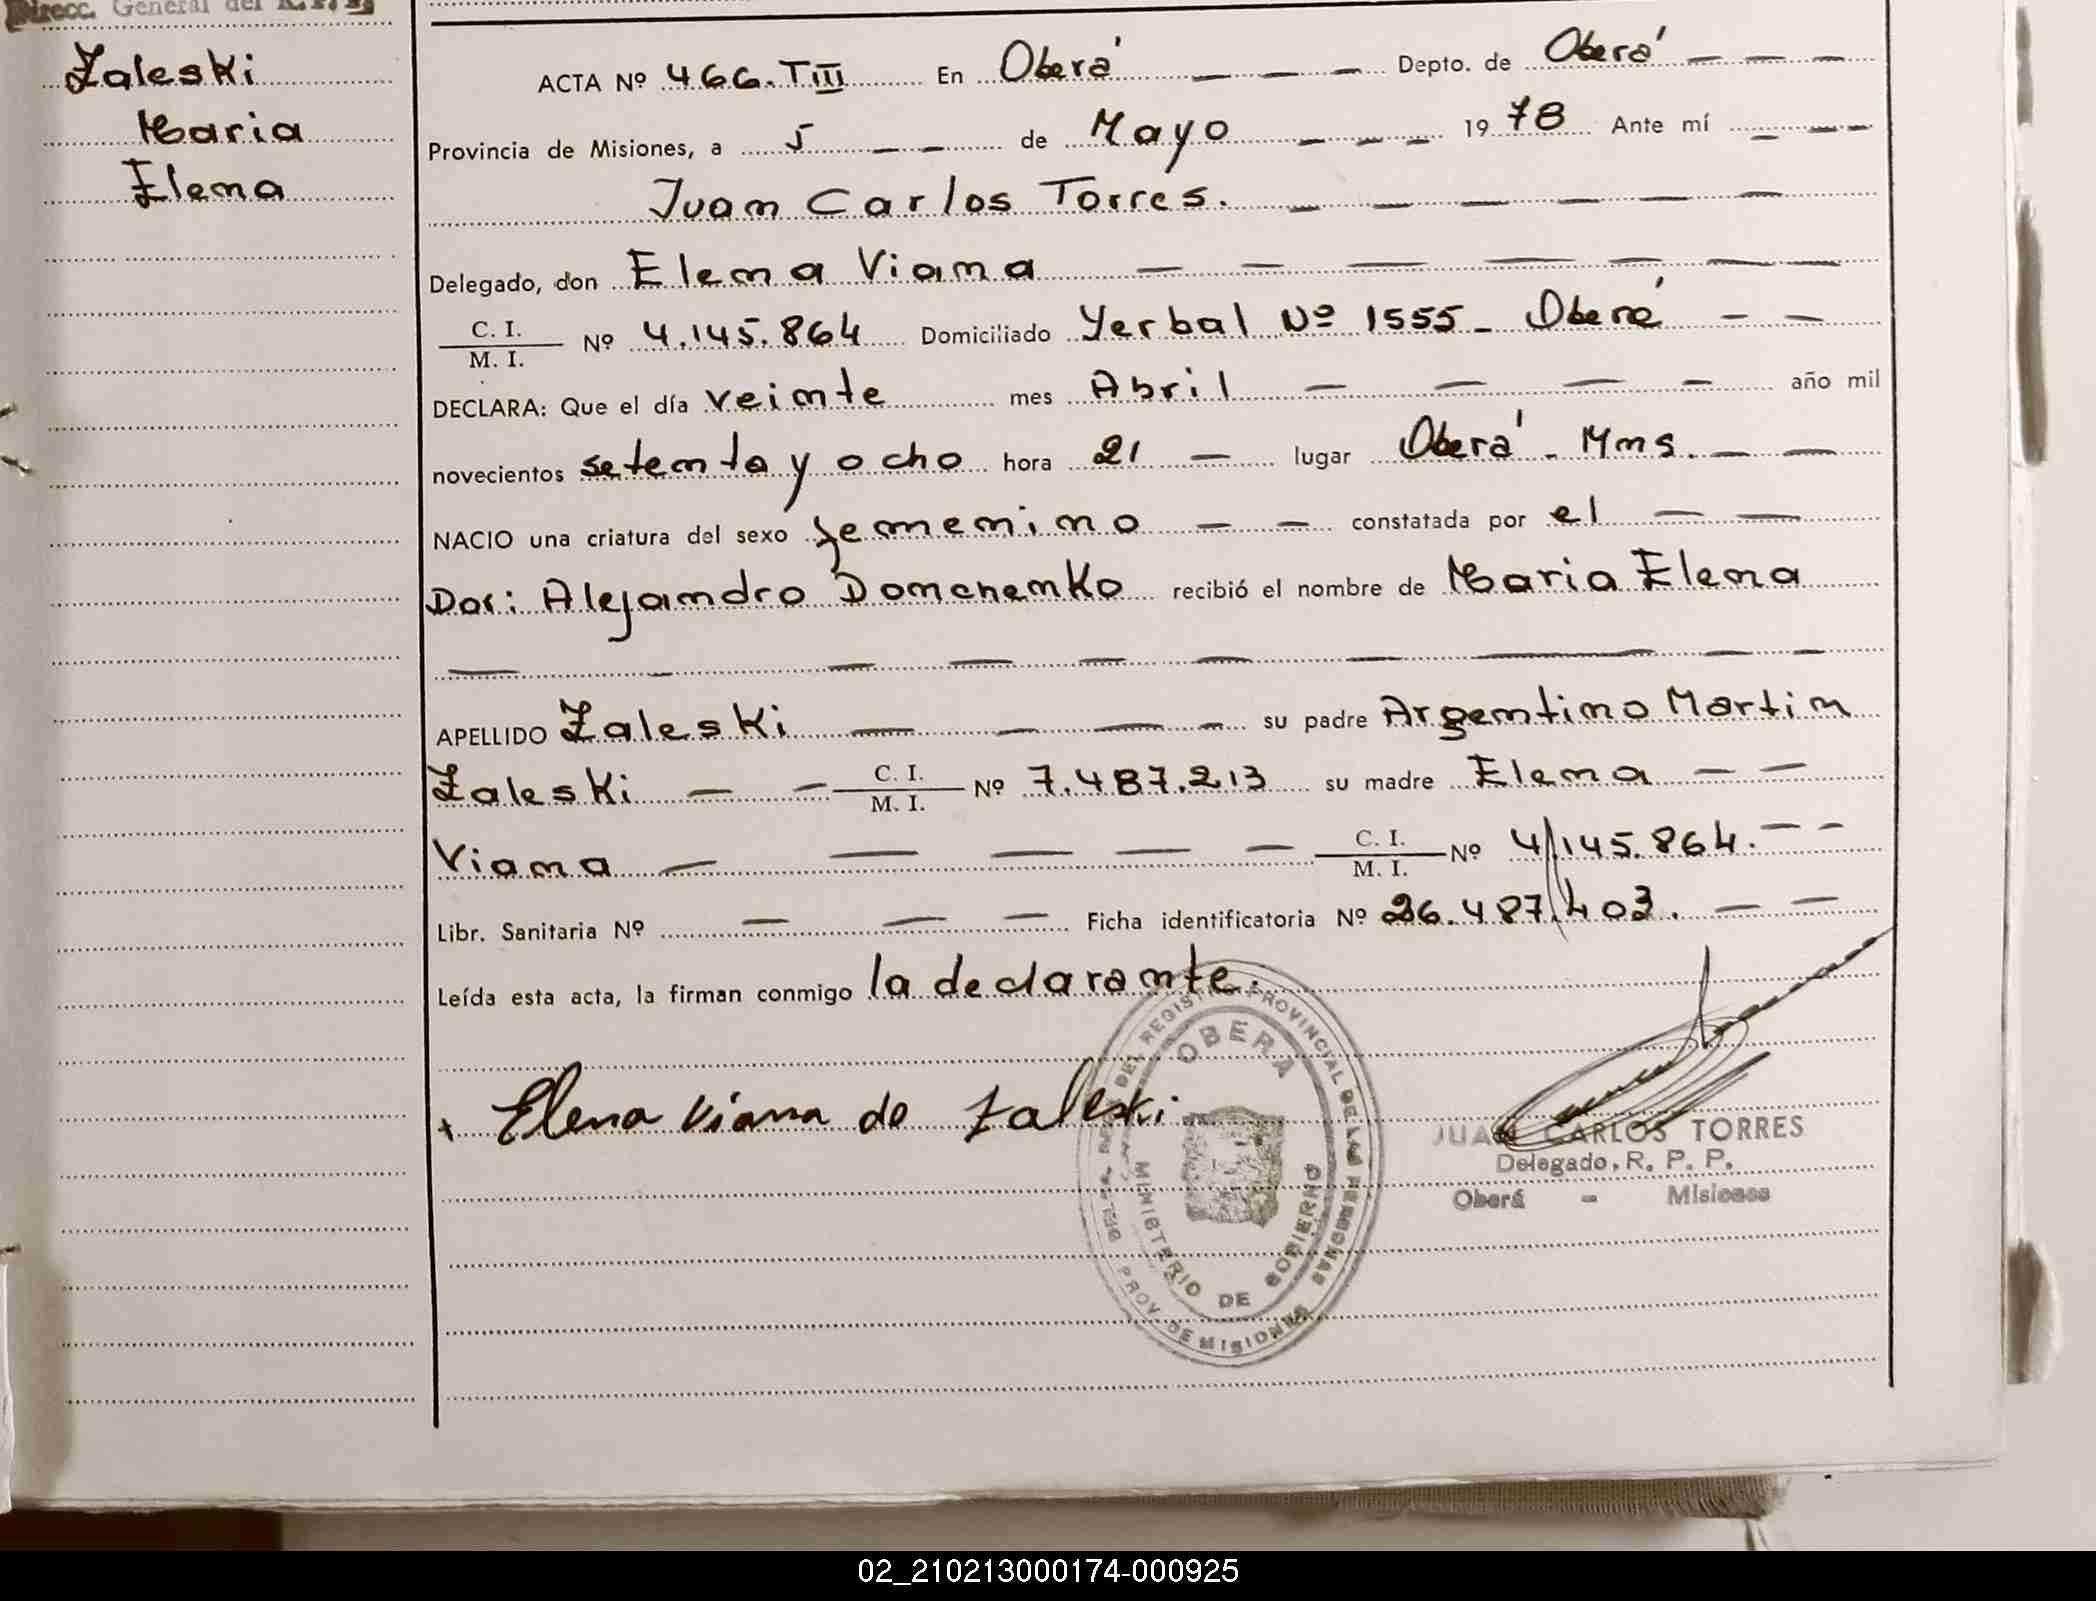 Direcc. General del R.P.P.
Zaleski
Maria
Elena
ACTA Nº 466.TIII En Oberá Depto. de Oberá
Provincia de Misiones, a 5 de Mayo 1978 Ante mí
Juan Carlos Torres.
Delegado, don Elena Viana
C. I.
M. I.
Nº 4.145.864 Domiciliado Yerbal Nº 1555 - Oberá
DECLARA: Que el día veinte mes Abril año mil
novecientos setenta y ocho hora 21 lugar Oberá - Mns.
NACIO una criatura del sexo femenino constatada por el
Dor: Alejandro Domchenko recibió el nombre de Maria Elena
APELLIDO Zaleski su padre Argentino Martin
Zaleski C. I. M. I. Nº 7.487.213 su madre Elena
Viana C. I. M. I. Nº 4.145.864.
Libr. Sanitaria Nº Ficha identificatoria Nº 26.487.403.
Leída esta acta, la firman conmigo la declarante.
Elena Viana de Zaleski
DEL REGISTRO PROVINCIAL DE LAS PERSONAS
OBERA
MINISTERIO DE GOBIERNO
PROV. DE MISIONES
JUAN CARLOS TORRES
Delegado, R. P. P.
Oberá - Misiones
02_210213000174-000925